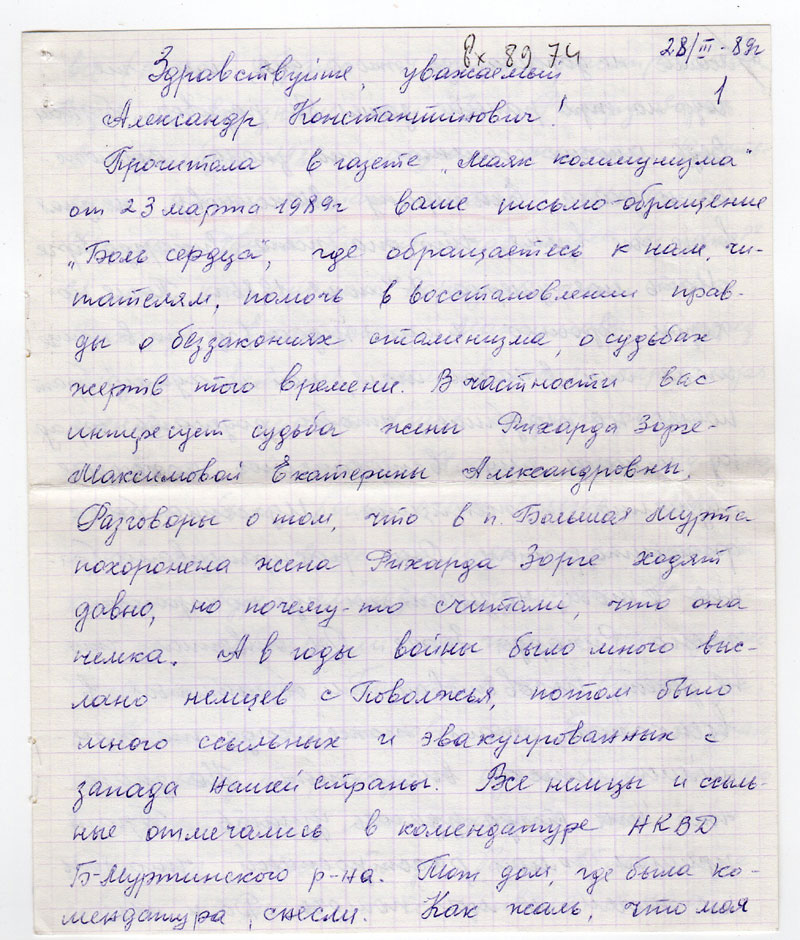 Вх 89 74
28/III-89г
1
Здравствуйте, уважаемый
Александр Константинович!
Прочитала в газете „Маяк коммунизма"
от 23 марта 1989г ваше письмо-обращение
„Боль сердца", где обращаетесь к нам, чи-
тателям, помочь в восстановлении прав-
ды о беззакониях сталинизма, о судьбах
жертв того времени. В частности вас
интересует судьба жены Рихарда Зорге-
Максимовой Екатерины Александровны.
Разговоры о том, что в п. Большая Мурта
похоронена жена Рихарда Зорге ходят
давно, но почему-то считали, что она
немка. А в годы войны было много выс-
лано немцев с Поволжья, потом было
много ссыльных и эвакуированных с
запада нашей страны. Все немцы и ссыль-
ные отмечались в комендатуре НКВД
Б-Муртинского р-на. Тот дом, где была ко-
мендатура, снесли. Как жаль, что моя